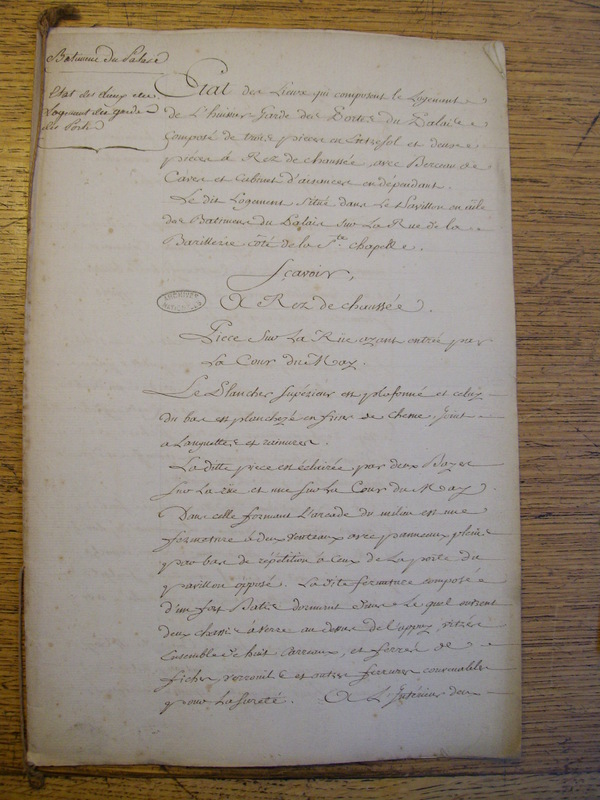 Batiment du Palais
Etat des lieux du
Logement des garde
des Portes
Etat des Lieux qui composent le Logement
de L'huissier Garde des Portes du Palais
Composé de trois pieces en Entresol et deux
pieces à Rez de chaussée, avec Berceau de
Caves et Cabinet d'aisances en dépendant.
Le dit Logement situé dans le Pavillon en aile
des Batimens du Palais sur La Rue de la
Barillerie côté de la Ste. Chapelle.
Sçavoir,
A Rez de chaussée.
ARCHIVES NATIONALES
Piece sur La Rüe ayant entrée par
La Cour du May.
Le Plancher supérieur est plafonné et celuy
du bas est planchezé en frises de chesne, joint
a Languettes et rainures.
La ditte piece est éclairée par deux Bayes
sur La rüe et une sur La Cour du May.
Dans celle formant L'arcade du milieu est une
fermeture à deux venteaux avec panneaux pleins
par bas de répétition à Ceux de La porte du
pavillon opposé. La dite fermeture composée
d'un fort Batis dormant dans Le quel ouvrent
deux chassis à verre au dessus de l'appuy, vitrés
Ensemble de huit Carreaux, et ferrés de
fiches verrouils et autres ferrures convenables
pour La sureté. A L'Intérieur deux